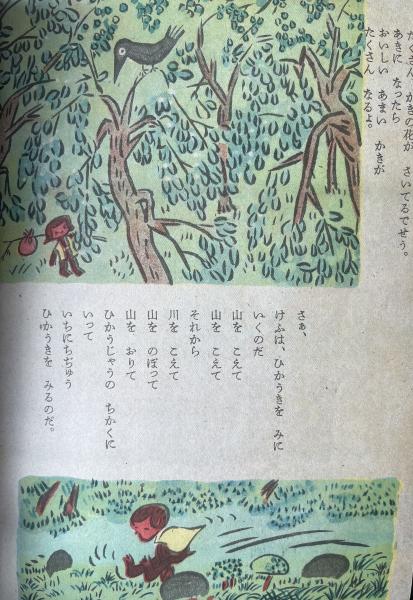 たくさん かきの花が さいてるでせう。
あきに なったら
おいしい あまい かきが
たくさん なるよ。
さあ、
けふは、ひかうきを みに
いくのだ
山を こえて
山を こえて
それから
川を こえて
山を のぼって
山を おりて
ひかうじゃうの ちかくに
いって
いちにちぢゅう
ひかうきを みるのだ。